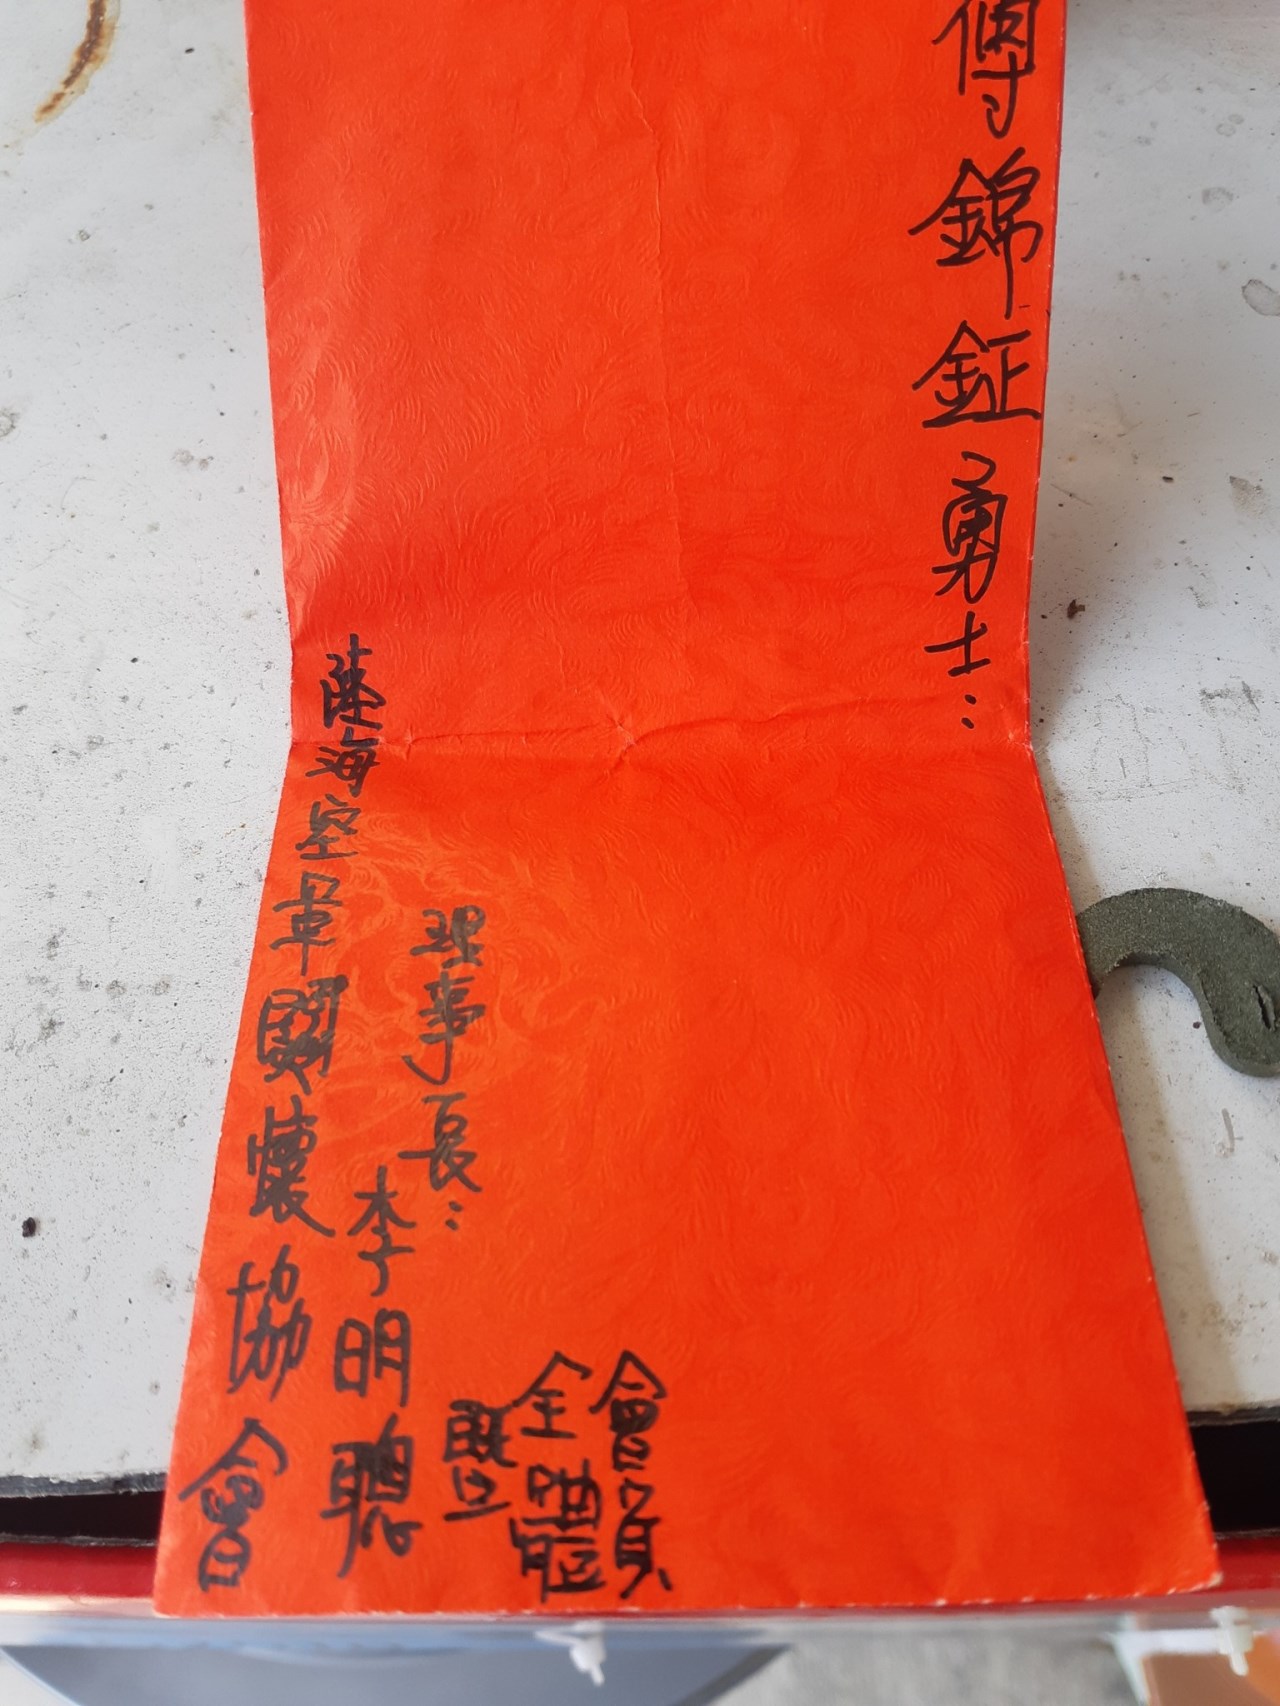 傅錦鉦勇士：
會員
全體
暨
理事長：
李明聰
陸海空軍關懷協會